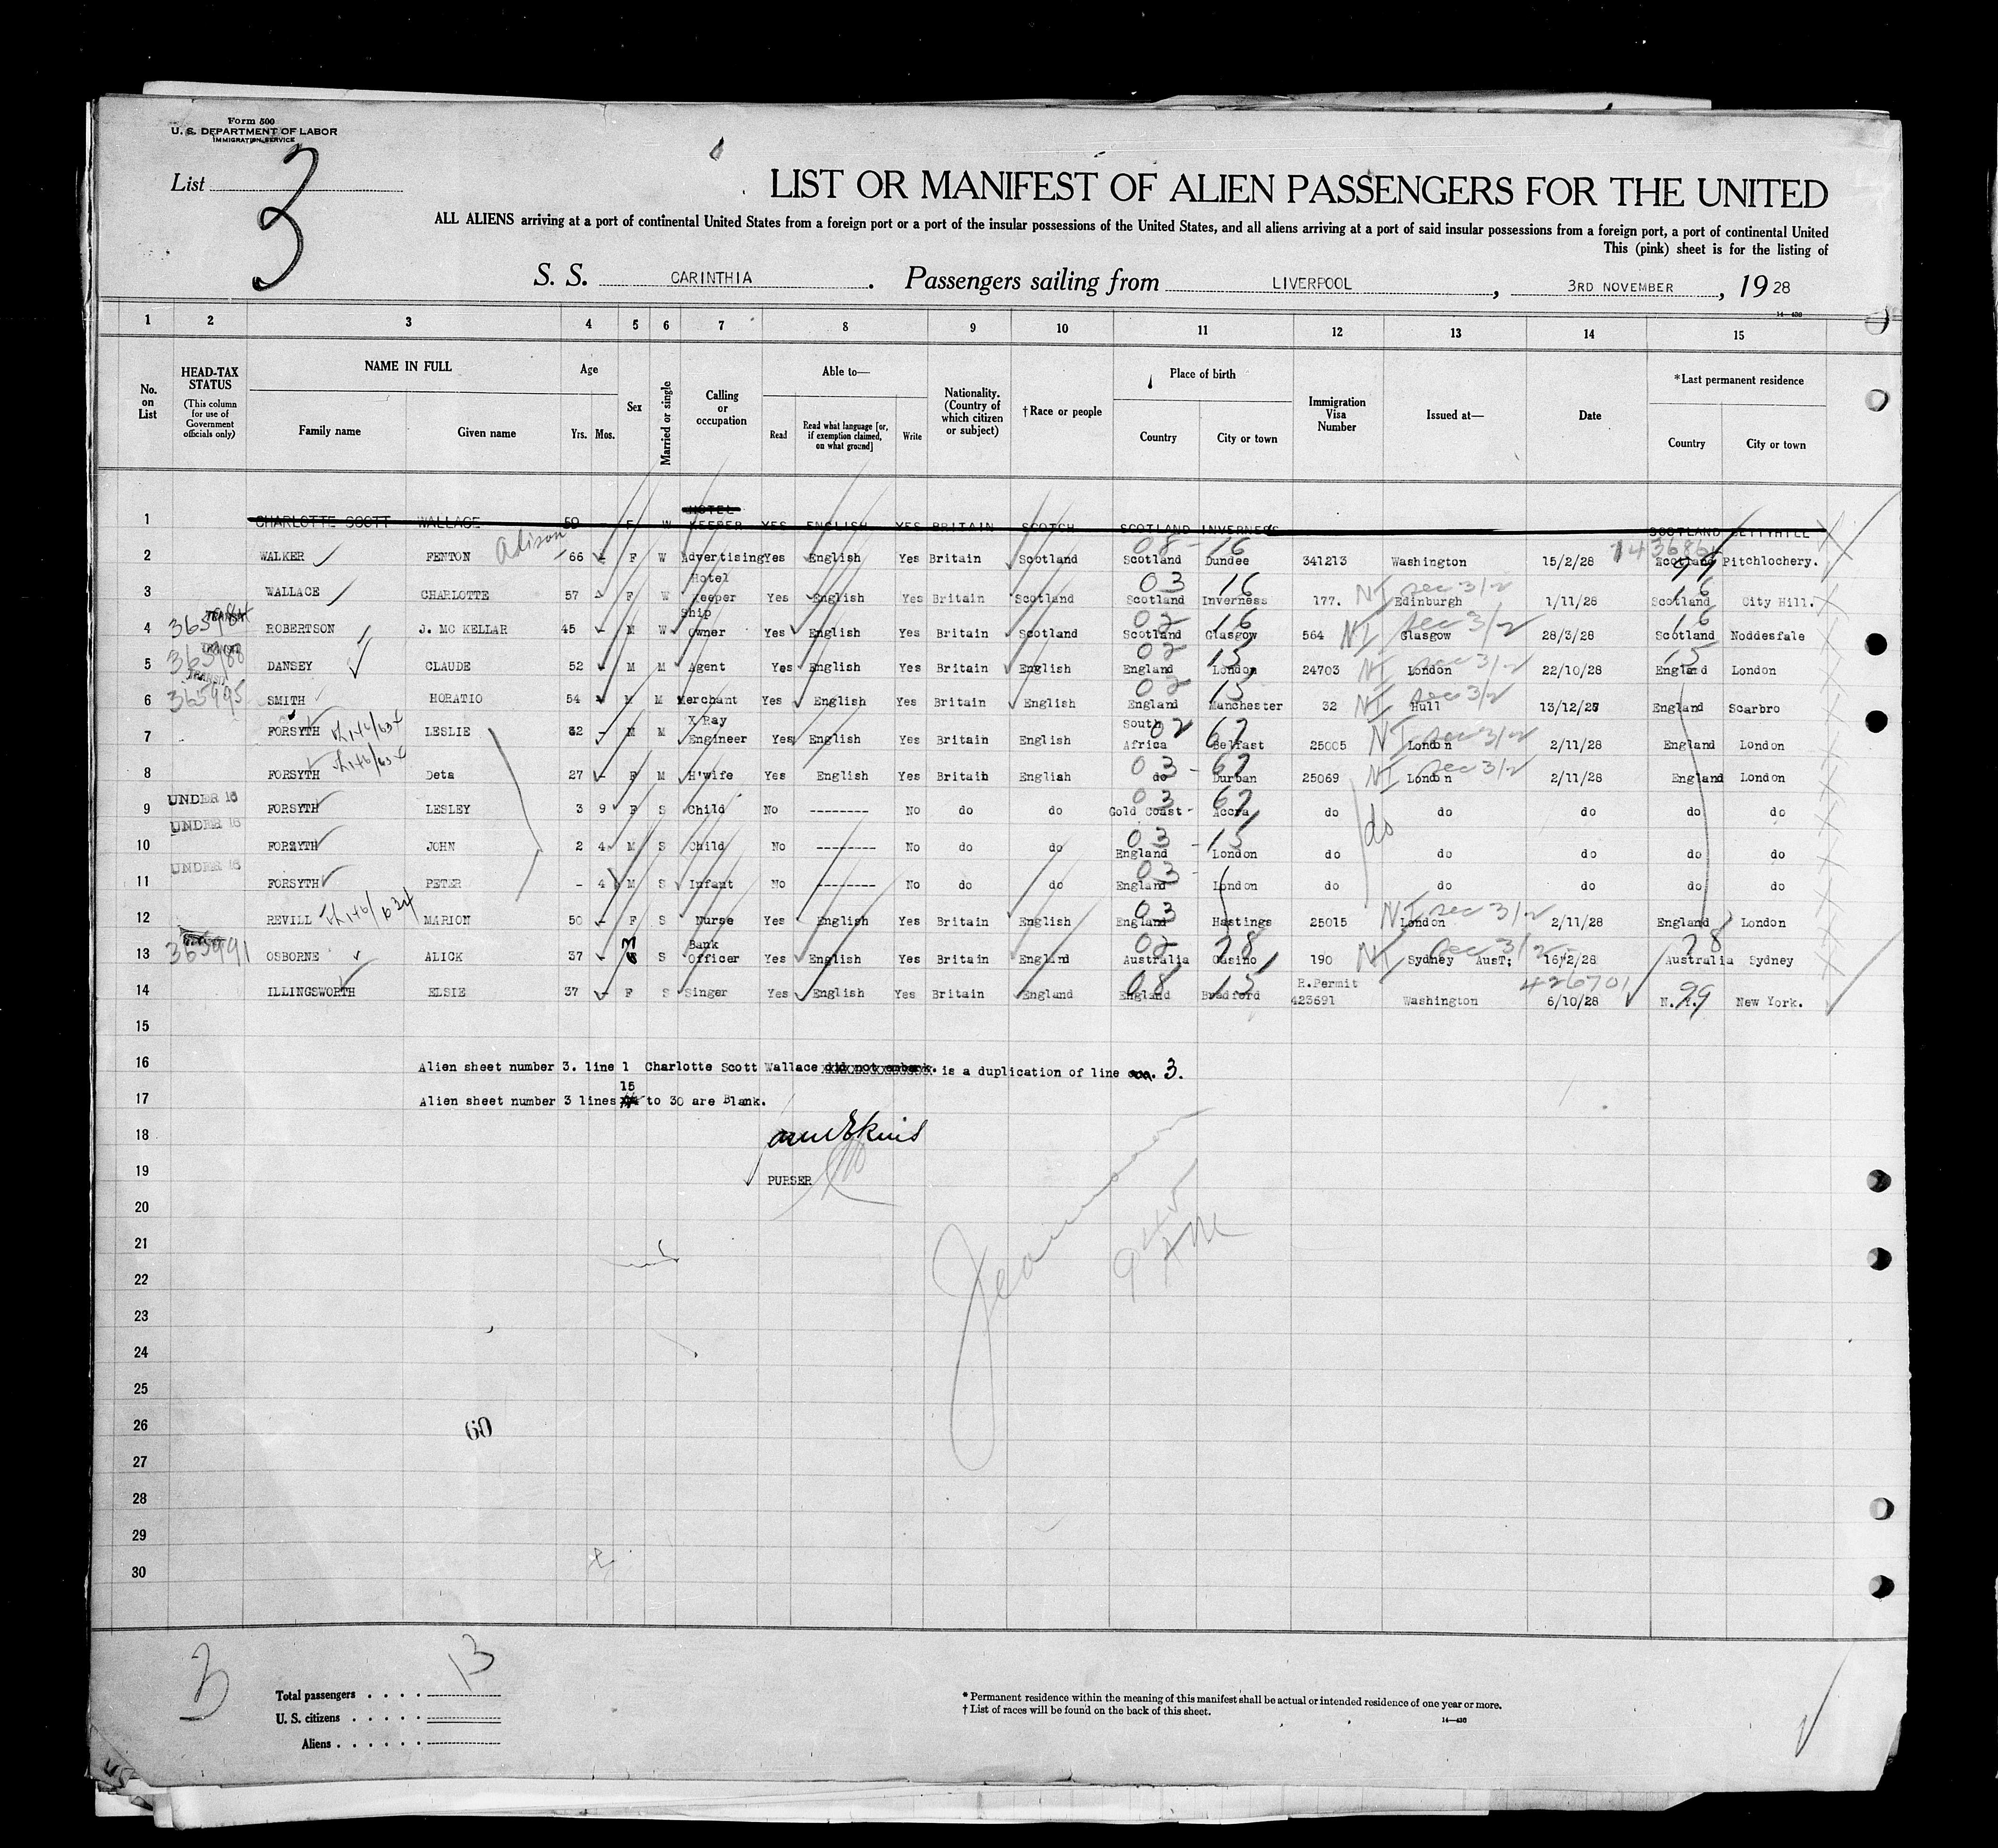 Form 500
U. S. DEPARTMENT OF LABOR
IMMIGRATION SERVICE
List 3
LIST OR MANIFEST OF ALIEN PASSENGERS FOR THE UNITED
ALL ALIENS arriving at a port of continental United States from a foreign port or a port of the insular possessions of the United States, and all aliens arriving at a port of said insular possessions from a foreign port, a port of continental United
This (pink) sheet is for the listing of
S. S. CARINTHIA. Passengers sailing from LIVERPOOL, 3RD NOVEMBER, 19 28
14-430
1 2 3 4 5 6 7 8 9 10 11 12 13 14 15
No. on List
HEAD-TAX STATUS (This column for use of Government officials only)
NAME IN FULL Family name Given name
Age Yrs. Mos.
Sex
Married or single
Calling or occupation
Able to— Read Read what language [or, if exemption claimed, on what ground] Write
Nationality. (Country of which citizen or subject)
†Race or people
Place of birth Country City or town
Immigration Visa Number
Issued at—
Date
*Last permanent residence Country City or town
1 CHARLOTTE SCOTT WALLACE 59 - F W HOTEL KEEPER YES ENGLISH YES BRITAIN SCOTCH SCOTLAND INVERNESS SCOTLAND BETTYHILL
2 WALKER FENTON Adison 66 - F W Advertising Yes English Yes Britain Scotland Scotland Dundee 341213 Washington 15/2/28 Scotland Pitchlochery.
08 - 16 99
3 WALLACE CHARLOTTE 57 - F W Hotel Keeper Yes English Yes Britain Scotland Scotland Inverness 177. Edinburgh 1/11/28 Scotland City Hill.
03 16 NI Sec 3/2 16
4 ROBERTSON J. MC KELLAR 45 - M W Ship Owner Yes English Yes Britain Scotland Scotland Glasgow 564 Glasgow 28/3/28 Scotland Noddesfale
TRANSIT 02 16 NI Sec 3/2 16
5 DANSEY CLAUDE 52 - M M Agent Yes English Yes Britain English England London 24703 London 22/10/28 England London
02 15 NI Sec 3/2 15
6 365995 SMITH HORATIO 54 M M Merchant Yes English Yes Britain English England Manchester 32 Hull 13/12/27 England Scarbro
TRANSIT 02 15 NI Sec 3/2
7 FORSYTH LESLIE 32 - M M X Ray Engineer Yes English Yes Britain English South Africa Belfast 25005 London 2/11/28 England London
02 67 NI Sec 3/2
8 FORSYTH Deta 27 - F M H'wife Yes English Yes Britain English do Durban 25069 London 2/11/28 England London
03 - 67 NI Sec 3/2
9 UNDER 16 FORSYTH LESLEY 3 9 F S Child No -------- No do do Gold Coast - Accra do do do do do
03 67 do
10 UNDER 16 FORSYTH JOHN 2 4 M S Child No -------- No do do England London do do do do do
03 - 15
11 UNDER 16 FORSYTH PETER - 4 M S Infant No -------- No do do England London do do do do do
03 -
12 REVILL MARION 50 - F S Nurse Yes English Yes Britain English England Hastings 25015 London 2/11/28 England London
03 NI Sec 3/2
13 365991 OSBORNE ALICK 37 - M S Bank Officer Yes English Yes Britain England Australia Casino 190 Sydney AusT; 16/2/28 Australia Sydney
02 78 NI Sec 3/2 78
14 ILLINGSWORTH ELSIE 37 - F S Singer Yes English Yes Britain England England Bradford R.Permit 423691 Washington 6/10/28 N. Y. New York.
08 15 426701 99
15
16 Alien sheet number 3. line 1 Charlotte Scott Wallace did not embark. is a duplication of line 3.
17 Alien sheet number 3 lines 15 to 30 are Blank.
18
19 PURSER
20
21
22
23
24
25
26 60
27
28
29
30
945 AM
3
Total passengers . . . . 13
U. S. citizens . . . . .
Aliens . . . . . .
* Permanent residence within the meaning of this manifest shall be actual or intended residence of one year or more.
† List of races will be found on the back of this sheet.
14-430